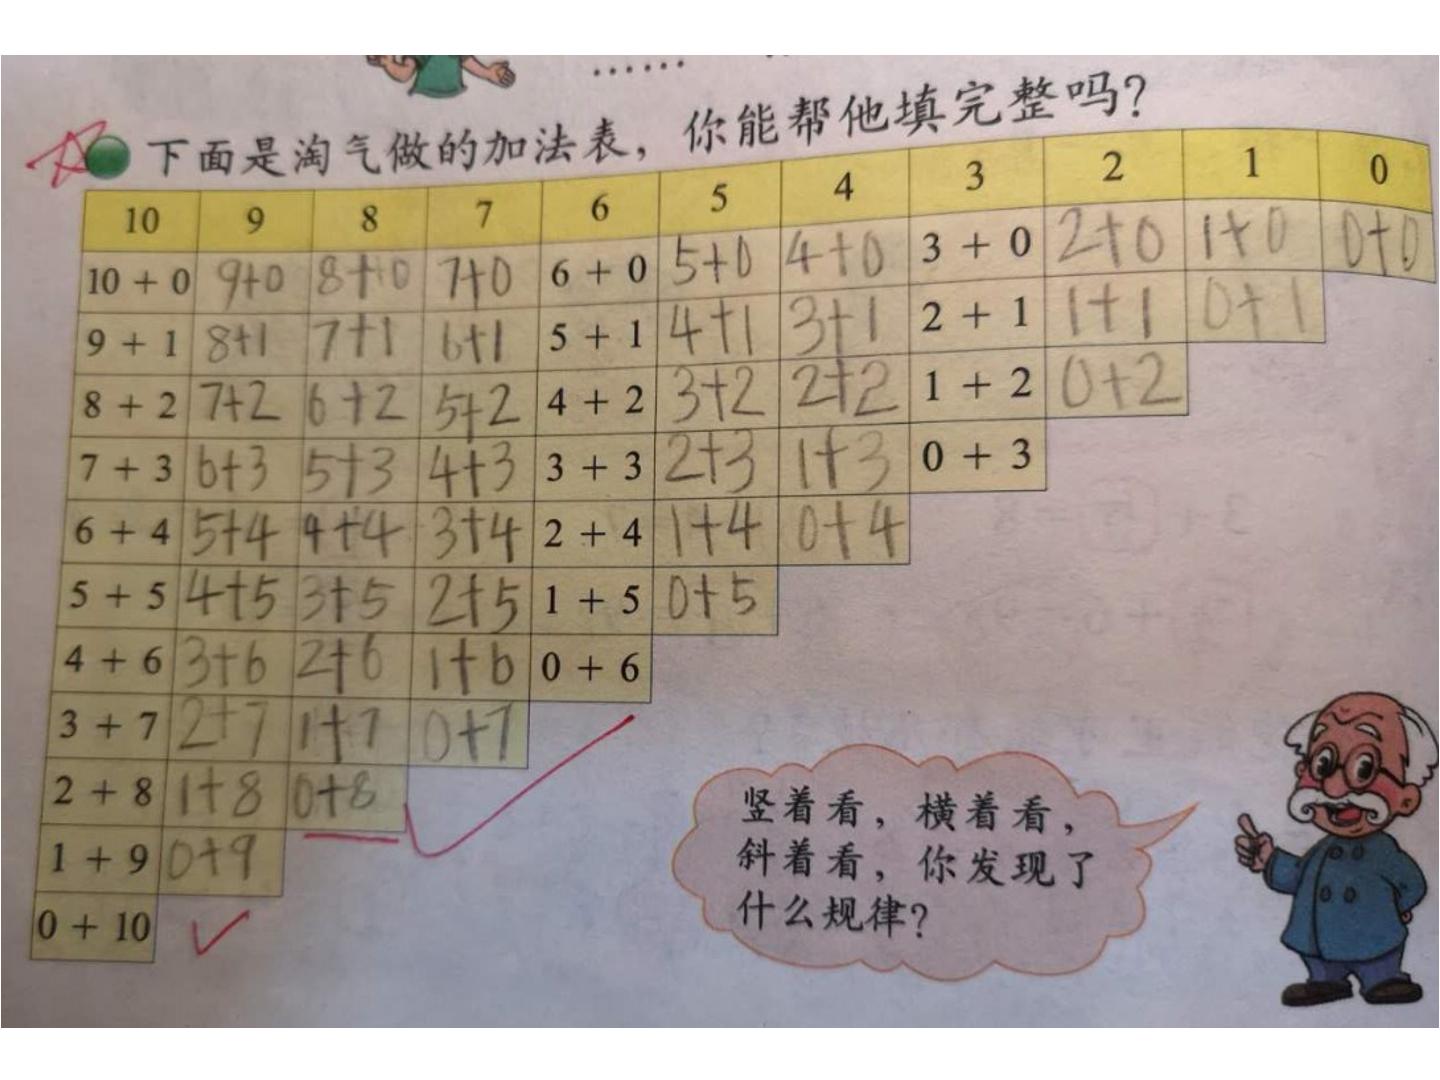 ······
下面是淘气做的加法表，你能帮他填完整吗？
10 9 8 7 6 5 4 3 2 1 0
10 + 0 9+0 8+0 7+0 6 + 0 5+0 4+0 3 + 0 2+0 1+0 0+0
9 + 1 8+1 7+1 6+1 5 + 1 4+1 3+1 2 + 1 1+1 0+1
8 + 2 7+2 6+2 5+2 4 + 2 3+2 2+2 1 + 2 0+2
7 + 3 6+3 5+3 4+3 3 + 3 2+3 1+3 0 + 3
6 + 4 5+4 4+4 3+4 2 + 4 1+4 0+4
5 + 5 4+5 3+5 2+5 1 + 5 0+5
4 + 6 3+6 2+6 1+6 0 + 6
3 + 7 2+7 1+7 0+7
2 + 8 1+8 0+8
1 + 9 0+9
0 + 10
竖着看，横着看，
斜着看，你发现了
什么规律？